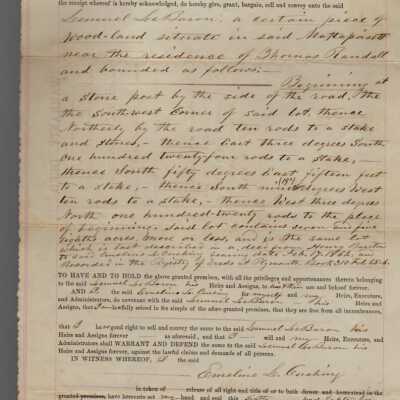 the receipt whereof is hereby acknowledged, do hereby give, grant, bargain, sell and convey unto the said
Lemuel LeBaron, a certain piece of
Wood-land situate in said Mattapoisett
near the residence of Thomas Randall
and bounded as follows:—
Beginning at
a stone post by the side of the road, the
the southwest corner of said lot, thence
Northerly by the road ten rods to a stake
and stones,— thence East three degrees South
one hundred twenty-four rods to a stake,—
thence South fifty degrees East fifteen feet
to a stake,— thence South nine (19°) degrees West
ten rods to a stake,— thence West three degrees
North one hundred-twenty rods to the place
of beginning. Said lot contains seven and five
eighths acres more or less, and is the same lot
which is last described in a deed from Henry
to said Emeline L. Cushing bearing date Feb. 17, and
recorded in the Registry of Deeds at Plymouth Book
TO HAVE AND TO HOLD the above granted premises, with all the privileges and appurtenances thereto belonging
to the said Lemuel LeBaron, his Heirs and Assigns, to their use and behoof forever.
AND I the said Emeline L. Cushing for myself and my Heirs, Executors,
and Administrators, do covenant with the said Lemuel LeBaron his Heirs and
Assigns, that I am lawfully seized in fee simple of the afore granted premises, that they are free from all incumbrances,
that I have good right to sell and convey the same to the said Lemuel LeBaron his
Heirs and Assigns forever as aforesaid, and that I will and my Heirs, Executors, and
Administrators shall WARRANT AND DEFEND the same to the said Lemuel LeBaron his
Heirs and Assigns forever, against the lawful claims and demands of all persons.
IN WITNESS WHEREOF, I the said
Emeline L. Cushing
in token of release of all right and title of or to both dower and homestead in the
granted premises, have hereunto set my hand and seal this